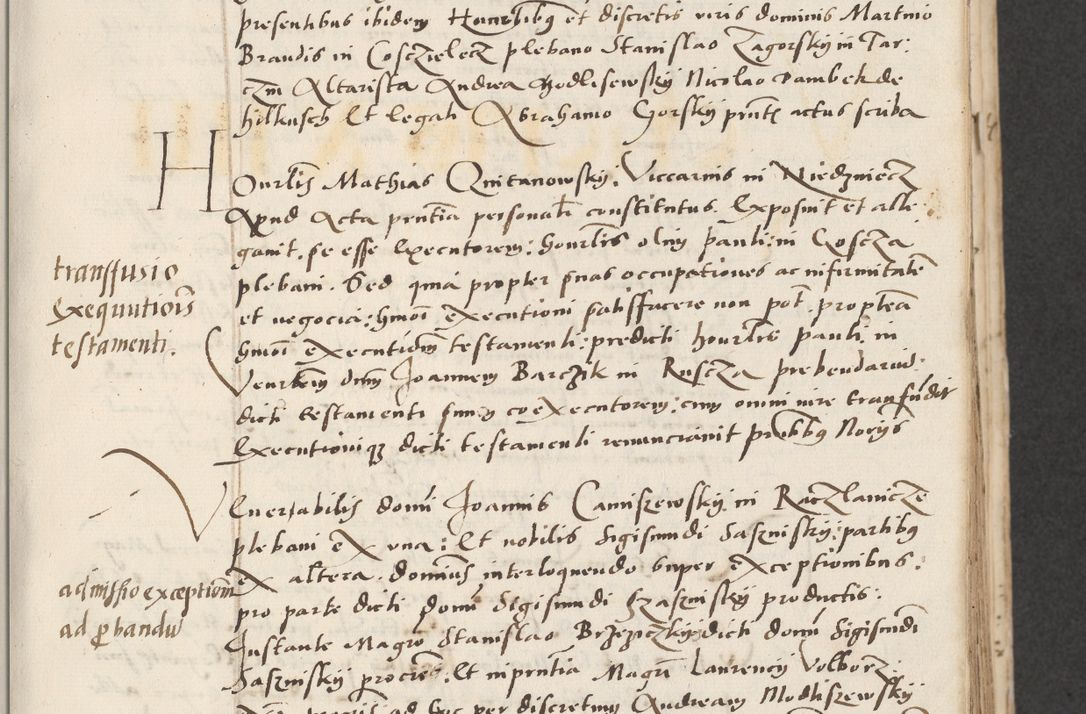 presentibus ibidem Honorlibq et discretis viris dominis Martino
Brandis in Cosczielecz plebano Stanislao Zagorskÿ in Tar:
czin Altarista Andrea Modlisewskÿ Nicolao Dambek de
hilkusch Et legali Abrahamo Gorskÿ pñtis actus scriba
Honrlis Mathias Qnitanowskÿ. Viccarius in Niedzwiecz
Apud Acta pñtia personali constitutus. Exposuit et alle:
gauit. se esse Executorem: honrlis olim pauli: in Coscza
plebani. Sed quia propter suas occupationes ac infirmitate
et negocia: hmoi Executioni satisfacere non pot. proptea
hmoi Executione testamenti: predicti honrlis pauli in
Venrlem dnm Joannem Barczik in Ruscza prebendariu:
dicti testamenti suum coexecutorem: cum omni iure transfudit
Executioniqz dicti testamenti renuncianit pñtibq Norys
transfusio
Exequutiois
testamenti.
Venerabilis domi Joannis Camiszewskÿ in Raczlanicze
plebani Ex vna: Et nobilis Sigismundi Saszniskÿ: partibq
Ex altera. dominus interloquendo super Exceptionibus.
pro parte dicti domi Sigismundi Szasznisky productis:
Instante Magro Stanislao Brzeziczkÿ dicti domi Sigismdi
Sasznskÿ procres. Et in pñtia Magri Laurency Volborz:
ad hoc per discretum Andream Modliszewskÿ
admissio exceptionu
ad pbandu